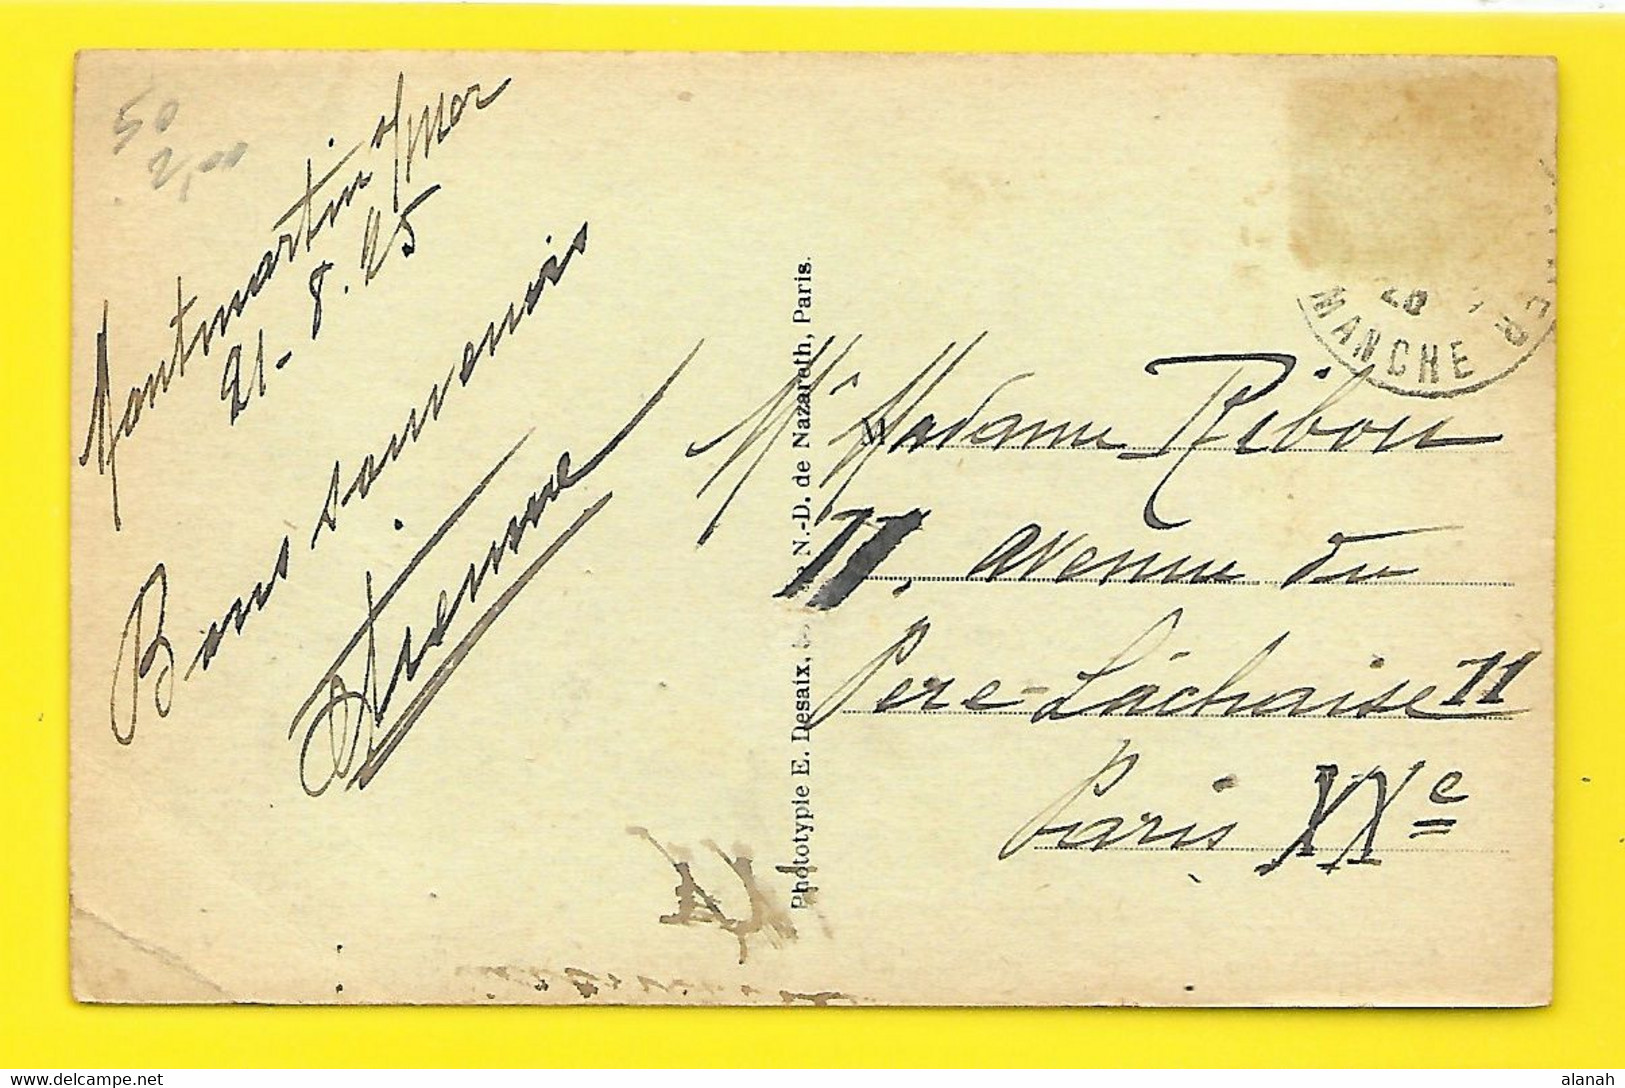 50
2,00
Hautmartin s/mer
21-8.25
Bons souvenirs
Etienne
Phototypie E. Desaix, N.-D. de Nazareth, Paris.
MANCHE
Mr Madame Ribon
11, avenue du
Père-Lachaise 11
Paris XXe
alanah